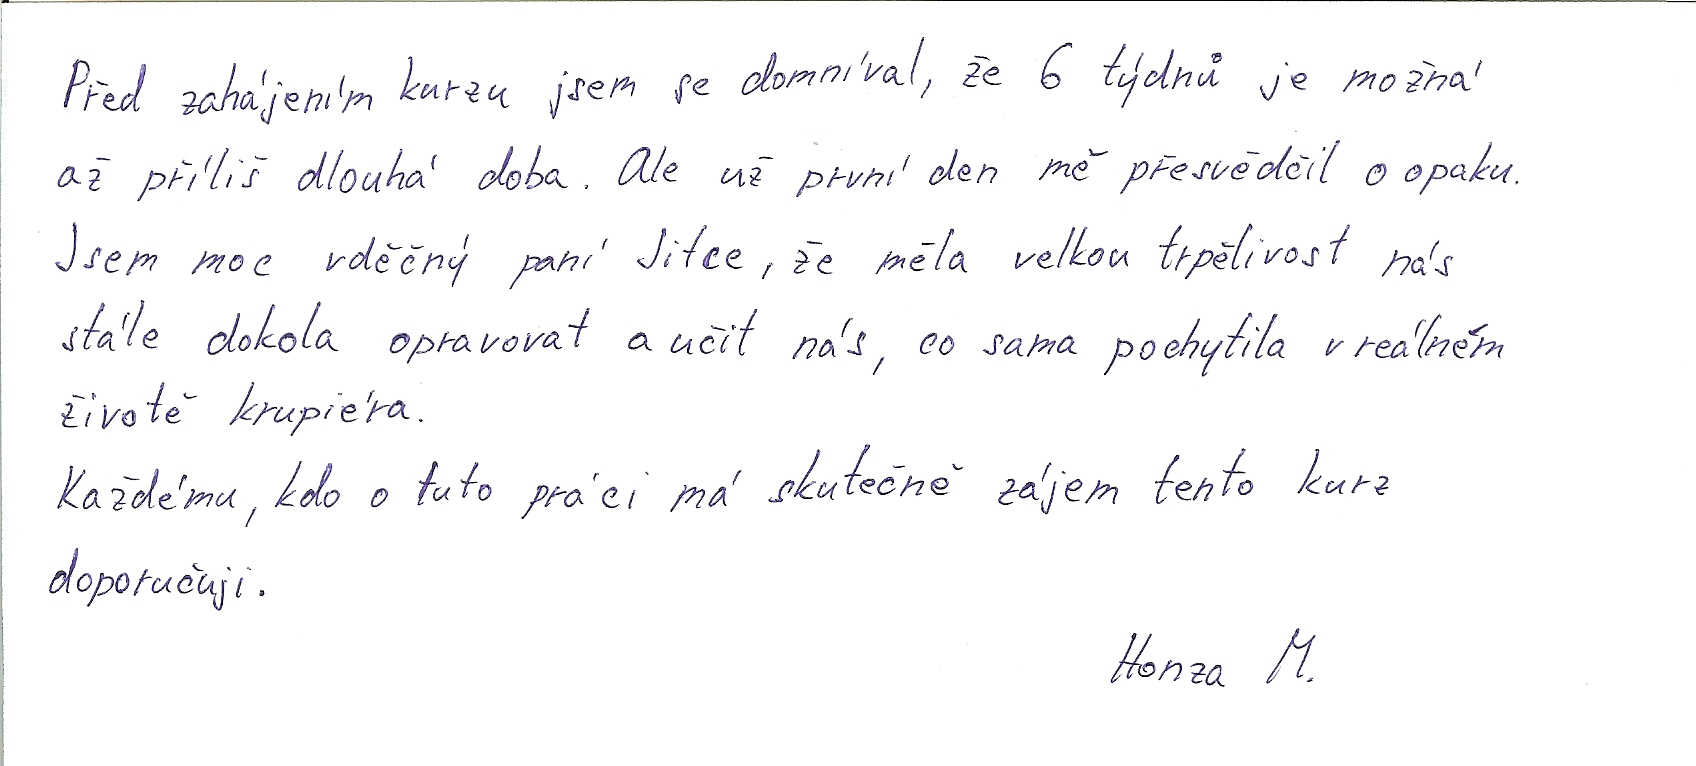 Před zahájením kurzu jsem se domníval, že 6 týdnů je možná
až příliš dlouhá doba. Ale už první den mě přesvědčil o opaku.
Jsem moc vděčný paní Jitce, že měla velkou trpělivost nás
stále dokola opravovat a učit nás, co sama pochytila v reálném
životě krupiéra.
Každému, kdo o tuto práci má skutečně zájem tento kurz
doporučuji.
Honza M.